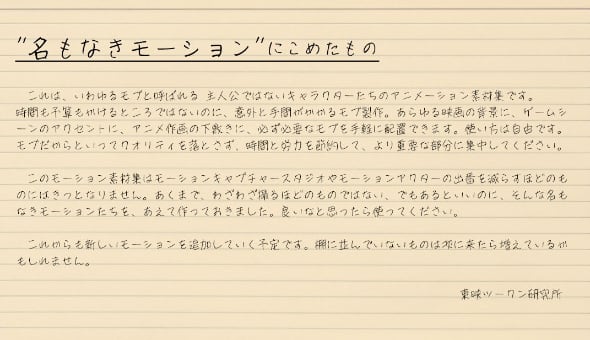 "名もなきモーション"にこめたもの
これは、いわゆるモブと呼ばれる 主人公ではないキャラクターたちのアニメーション素材集です。
時間も予算もかけるところではないのに、意外と手間がかかるモブ製作。あらゆる映画の背景に、ゲームシ
ーンのアクセントに、アニメ作画の下敷きに、必ず必要なモブを手軽に配置できます。使い方は自由です。
モブだからといってクオリティを落とさず、時間と労力を節約して、より重要な部分に集中してください。
このモーション素材集はモーションキャプチャースタジオやモーションアクターの出番を減らすほどのも
のにはきっとなりません。あくまで、わざわざ撮るほどのものではない、でもあるといいのに、そんな名も
なきモーションたちを、あえて作っておきました。良いなと思ったら使ってください。
これからも新しいモーションを追加していく予定です。棚に並んでいないものは次に来たら増えているか
もしれません。
東映ツークン研究所